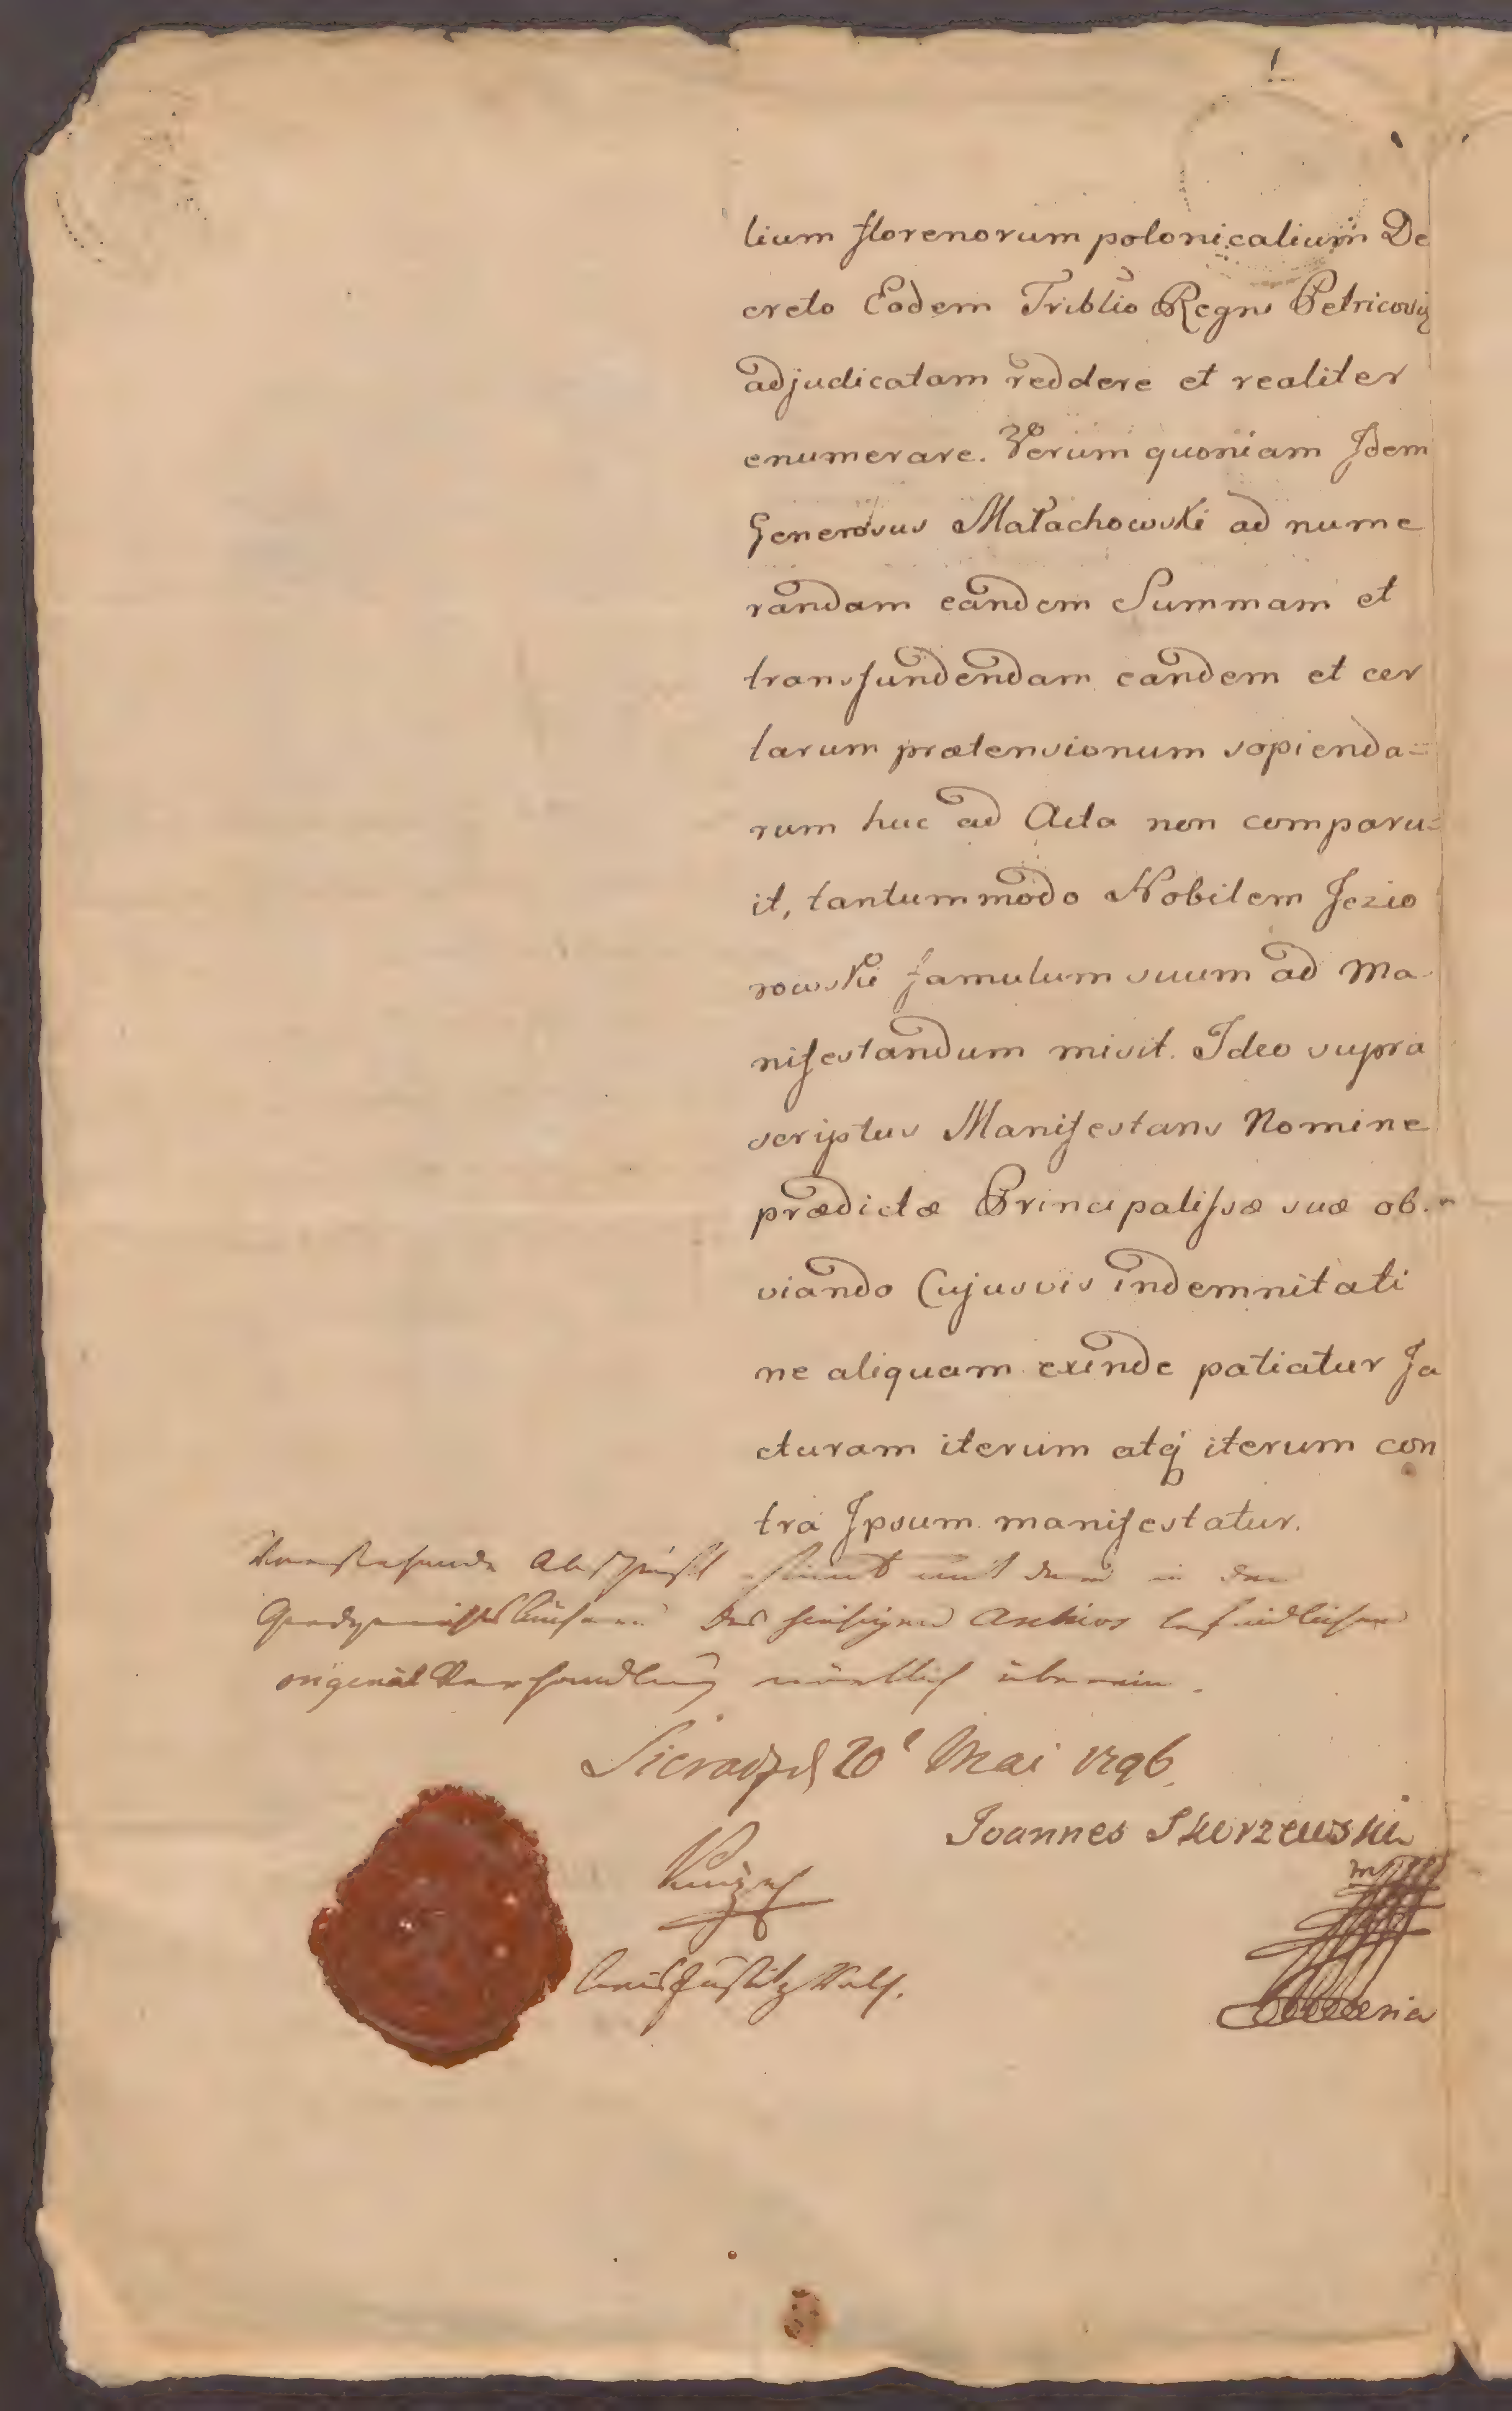 lium florenorum polonicalium De
creto Eodem Triblio Regni Petricoviæ
adjudicatam reddere et realiter
enumerare. Verum quoniam Idem
Generosus Małachowski ad nume
randam eandem Summam et
transfundendam eandem et cer
tarum prætensionum sopienda=
rum huc ad Acta non comparu=
it, tantummodo Nobilem Jezio
rowski famulum suum ad Ma
nifestandum misit. Ideo supra
scriptus Manifestans Nomine
prædictæ Principalissæ suæ ob-
viando Cujusvis indemnitati
ne aliquam exinde patiatur Ja
cturam iterum atq iterum con
tra Ipsum manifestatur.
Vorstehende Abschrift stimt mit der in den
des hiesigen Archivs befindlichen
original Verhandlung wörtlich überein.
Sieradz d 20t Mai 1796.
Joannes Skorzewski
mp